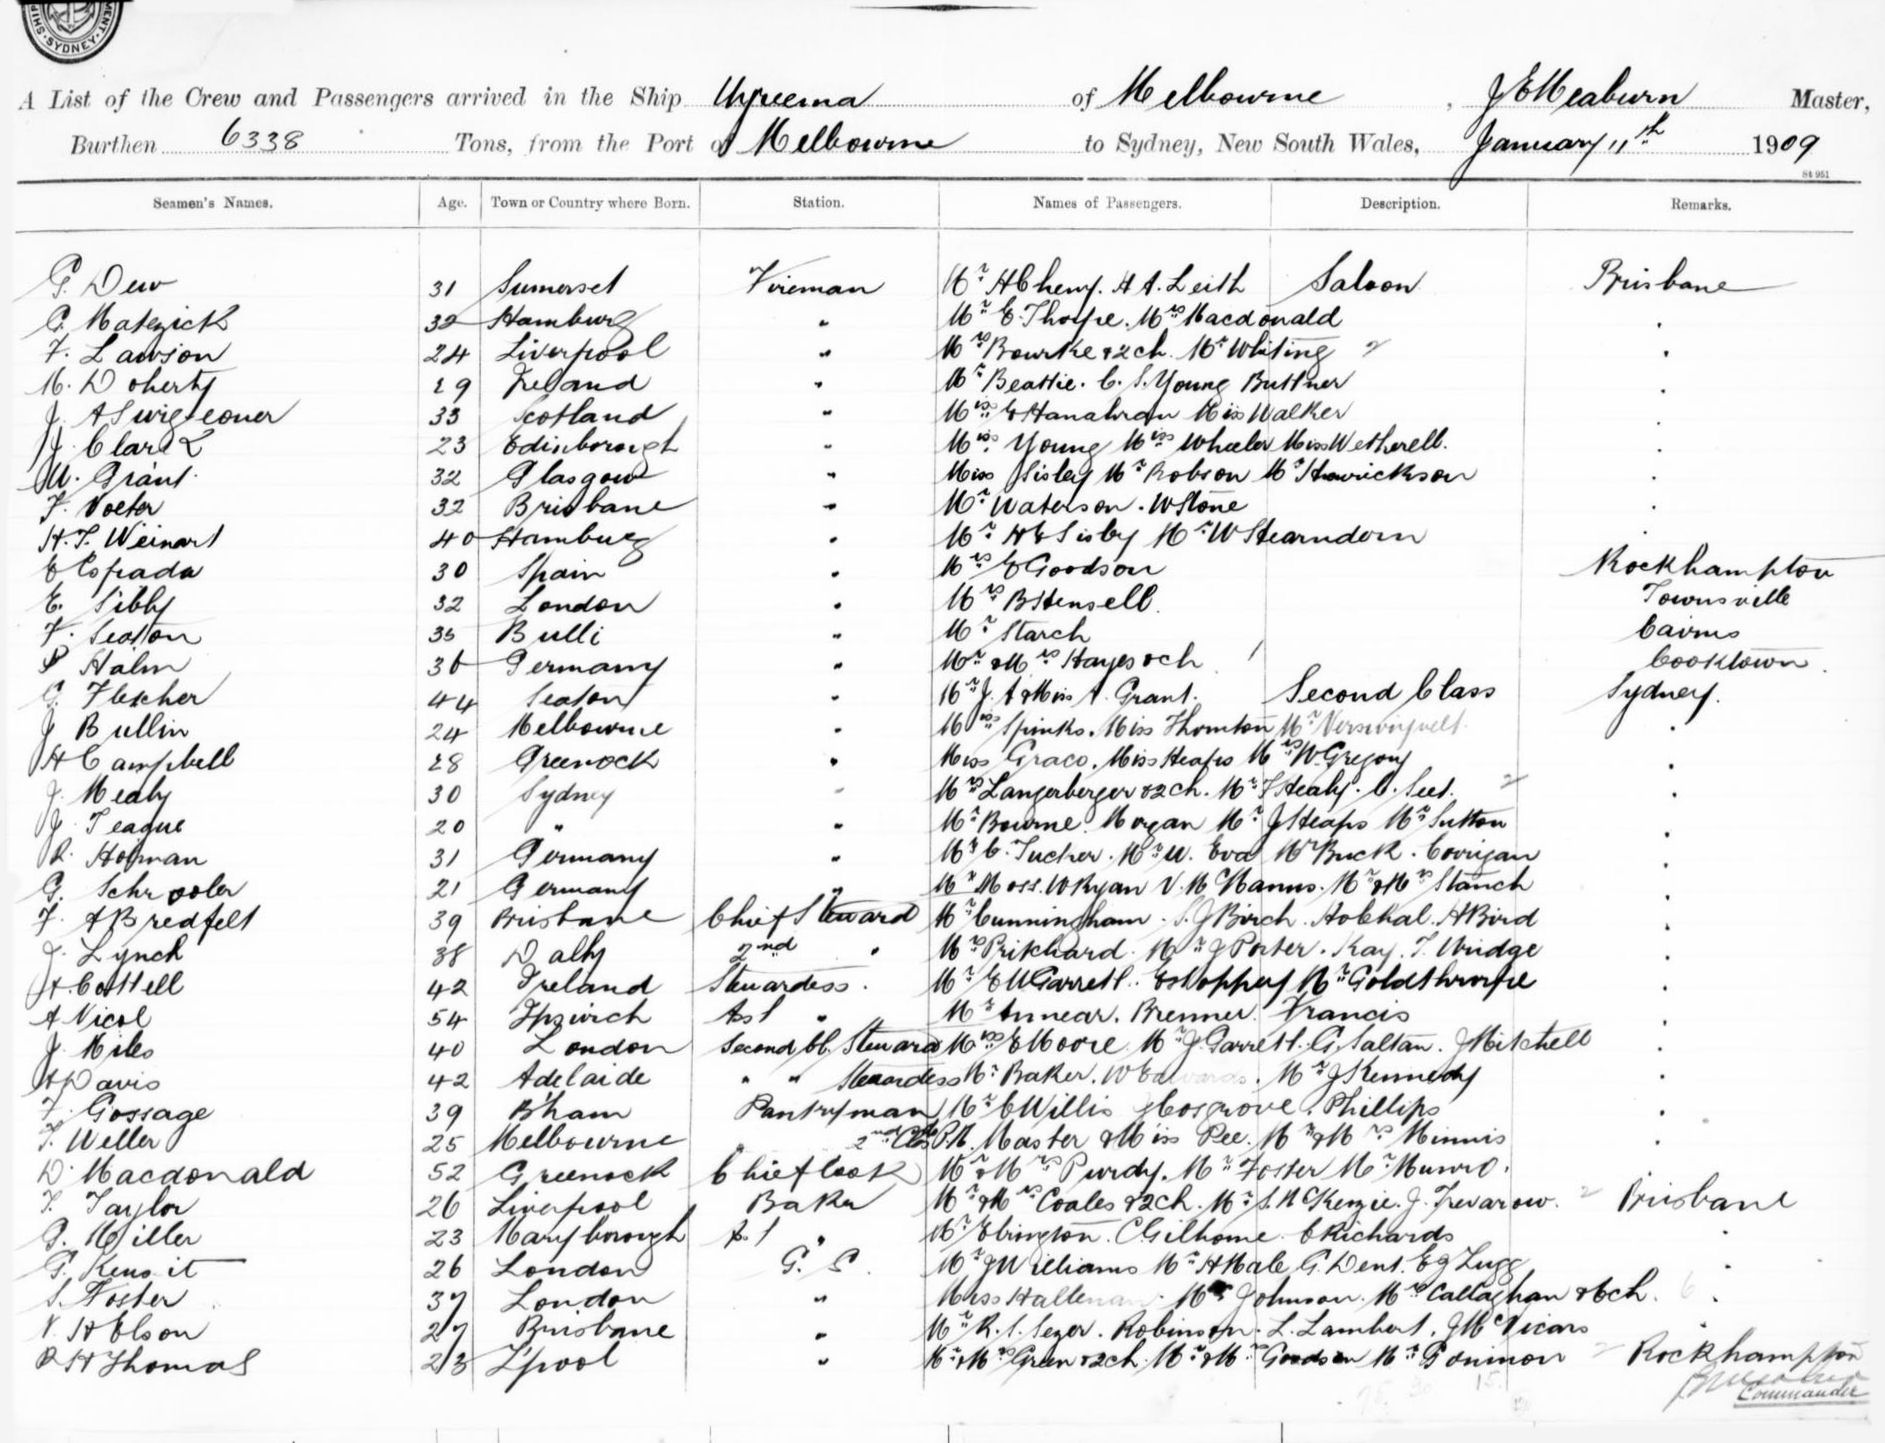 SYDNEY
A List of the Crew and Passengers arrived in the Ship Wyreema of Melbourne, J E Meaburn Master,
Burthen 6338 Tons, from the Port of Melbourne to Sydney, New South Wales, January 11th 1909
St 951
Seamen's Names. Age. Town or Country where Born. Station. Names of Passengers. Description. Remarks.
G. Dew 31 Somerset Fireman Mr A Cheny. A A. Leith Saloon Brisbane
32 Hamburg " Mr E. Thorpe. Mrs Macdonald "
F. Lawson 24 Liverpool " Mrs Bourke & 2 ch. Mr Whiting 2 "
M. Doherty 29 Ireland " Mr Beattie. C. S. Young Buttner "
J. 33 Scotland " Miss E Hanahran Miss Walker "
J. Clark 23 Edinborough " Miss Young Miss Wheeler Miss Wetherell. "
W. Grant. 32 Glasgow " Miss Sisley Mr Robson Mr "
F. Voeter 32 Brisbane " Mr Waterson. W Stone "
H. T. Weinart 40 Hamburg " Mr H E Sisley Mr W Stearndorn "
E Espada 30 Spain " Mrs E Goodson Rockhampton
E. Sibly 32 London " Mrs B Hensell. Townsville
F. Seaton 35 Bulli " Mr Starch Cairns
Halm 36 Germany " Mr & Mrs Hayes & ch 1 Cooktown.
G. Fletcher 44 Seaton " Mr J. A & Miss A. Grant. Second Class Sydney.
J Bullin 24 Melbourne " Miss Spinks. Miss Thornton Mr "
H Campbell 28 Greenock " Miss Graco. Miss Heaps Mrs W. Gregory "
J. Mealy 30 Sydney " Mrs Langerberger & 2 ch. Mr T Healy. C. Seet. 2 "
J. Teague 20 " " Mr Bourne. Morgan Mr J Heaps Mrs Sutton "
R. Hofman 31 Germany " Mr C. Tucker. Mr W. Eva Mr Buck. Corrigan "
G. 21 Germany " Mr Moss. W Ryan V. McManus. Mr & Mrs Stanch "
F. A Bredfelt 39 Brisbane Chief Steward Mr Cunningham. S. J Birch. H Bird "
J. Lynch 38 Dalby 2nd " Mrs Prikhard. Mr J Porter. Kay. T. "
A. Cottell 42 Ireland Stewardess. Mr E W Garrett. Mr Goldthorpe "
A Nicol 54 Ipswich Asst " Mr Annear. Brenner. Francis "
J. Miles 40 London Second Cl. Steward Miss E Moore. Mr J. Garrett. G. Saltan. J Mitchell "
A Davis 42 Adelaide " " Stewardess Mr Baker. W Edwards. Mr J Kennedy "
F. Gossage 39 B'ham Pantryman Mr C Willis Cosgrove. Phillips "
T. Weller 25 Melbourne " 2nd Class P.M. Master & Miss Pee. Mr & Mrs Minnis "
D. Macdonald 52 Greenock Chief Cook Mr & Mrs Purdy. Mr Foster Mr Munro.
T. Taylor 26 Liverpool Baker Mr & Mrs Coales & 2 ch. Mr S. McKenzie. J. Trevarow. 2 Brisbane
G. Miller 23 Maryborough Ast " Mr Ebrington. C. Gilhome. C Richards "
G. Kensit 26 London G. S. Mr J Williams Mr H Male G. Dent. E J Zugg "
S. Foster 37 London " Miss Mr Johnson. Mrs Callaghan & 6 ch. 6 "
V. H Olson 27 Brisbane " Mr R. S. Seger. Robinson. L. Lambert. J McVicars "
R H Thomas 23 L'pool " Mr & Mrs Green & 2 ch. Mr & Mrs Goodson Mr 2 Rockhampton
Commander